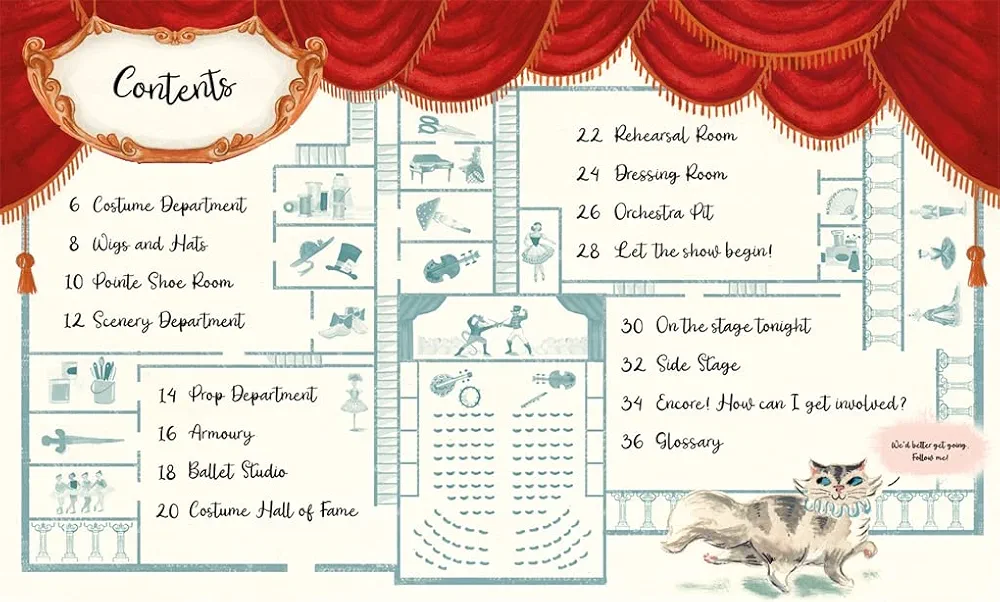 Contents
6 Costume Department
8 Wigs and Hats
10 Pointe Shoe Room
12 Scenery Department
14 Prop Department
16 Armoury
18 Ballet Studio
20 Costume Hall of Fame
22 Rehearsal Room
24 Dressing Room
26 Orchestra Pit
28 Let the show begin!
30 On the stage tonight
32 Side Stage
34 Encore! How can I get involved?
36 Glossary
We'd better get going.
Follow me!